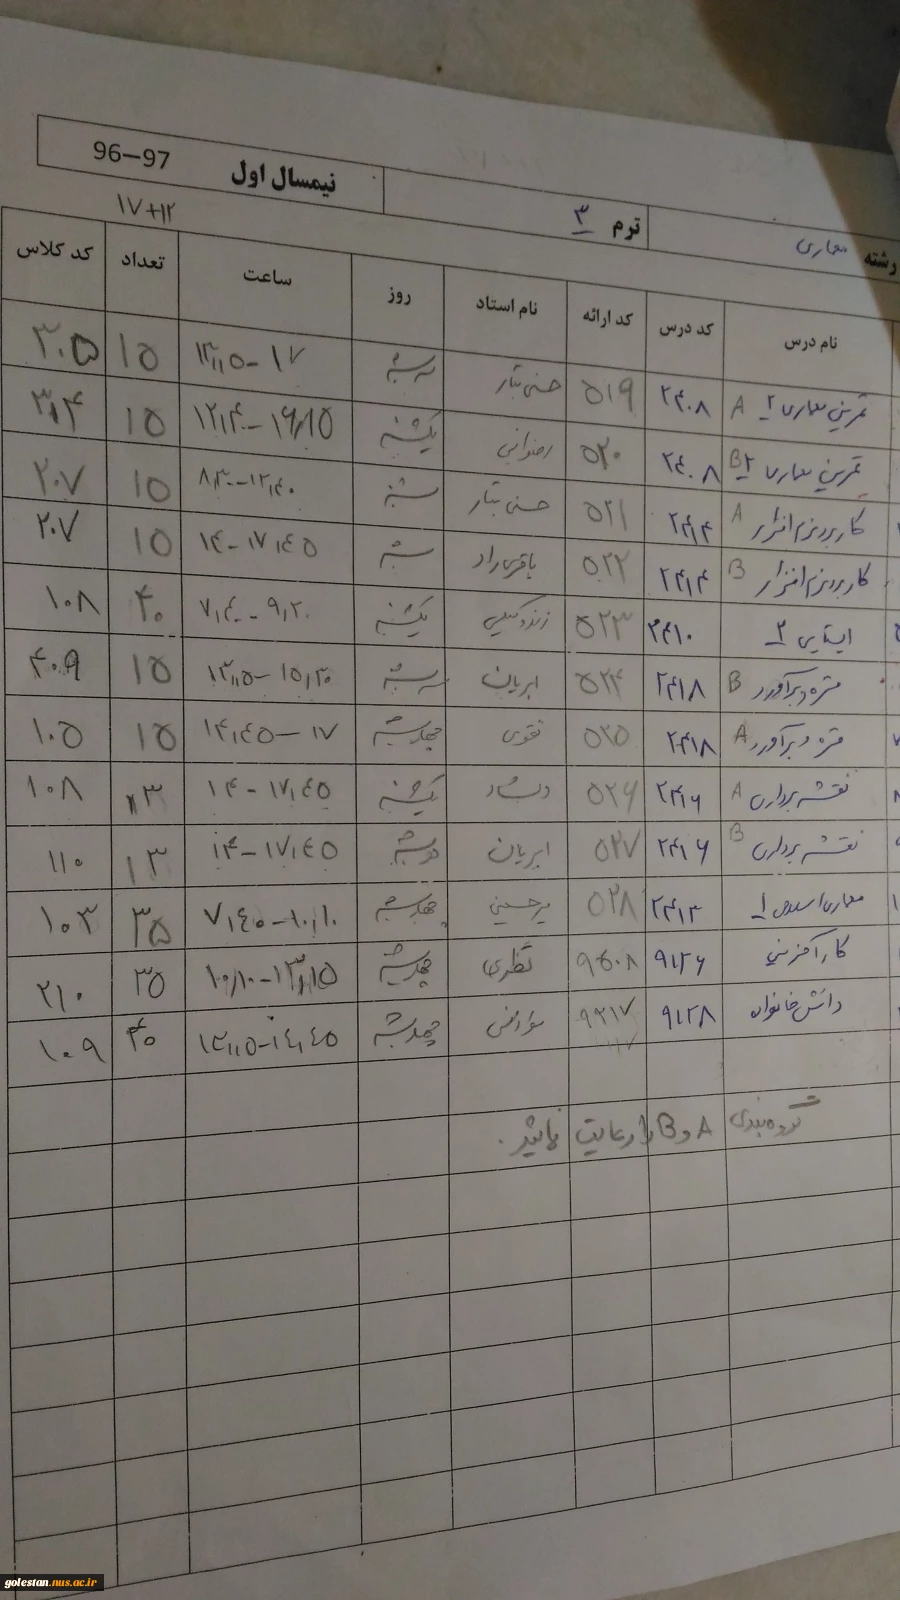 رشته معماری ترم ۳ نیمسال اول 96-97
۱۷+۱۲
نام درس کد درس کد ارائه نام استاد روز ساعت تعداد کد کلاس
تمرین معماری ۲ A ۲۴۰۸ ۵۱۹ حسنی تبار سه شنبه ۱۳,۱۵-۱۷ ۱۵ ۳۰۵
تمرین معماری ۲ B ۲۴۰۸ ۵۲۰ رضوانی یکشنبه ۱۵
کاربرد نرم افزار A ۲۴۱۴ ۵۲۱ حسنی تبار شنبه ۱۵ ۲۰۷
کاربرد نرم افزار B ۲۴۱۴ ۵۲۲ باقری راد شنبه ۱۴-۱۷,۴۵ ۱۵ ۲۰۷
ایستایی ۲ ۲۴۱۰ ۵۲۳ یکشنبه ۴۰ ۱۰۸
متره و برآورد B ۲۴۱۸ ۵۲۴ ابریان سه شنبه ۱۵ ۴۰۹
متره و برآورد A ۲۴۱۸ ۵۲۵ نقوی چهارشنبه ۱۴,۴۵-۱۷ ۱۵ ۱۰۵
نقشه برداری A ۲۴۱۶ ۵۲۶ دلشاد یکشنبه ۱۴-۱۷,۴۵ ۱۳ ۱۰۸
نقشه برداری B ۲۴۱۶ ۵۲۷ ابریان دوشنبه ۱۴-۱۷,۴۵ ۱۳ ۱۱۰
معماری اسلامی ۱ ۲۴۱۳ ۵۲۸ میرحسینی چهارشنبه ۷,۴۵-۱۰,۱۰ ۳۵ ۱۰۳
کارآفرینی ۹۱۲۶ ۹۵۰۸ نظری چهارشنبه ۱۰,۱۰-۱۳,۱۵ ۳۵ ۲۱۰
دانش خانواده ۹۱۲۸ ۹۲۱۷ چهارشنبه ۱۳,۱۵-۱۴,۴۵ ۴۰ ۱۰۹
گروه بندی A و B را رعایت نمائید.
golestan.nus.ac.ir